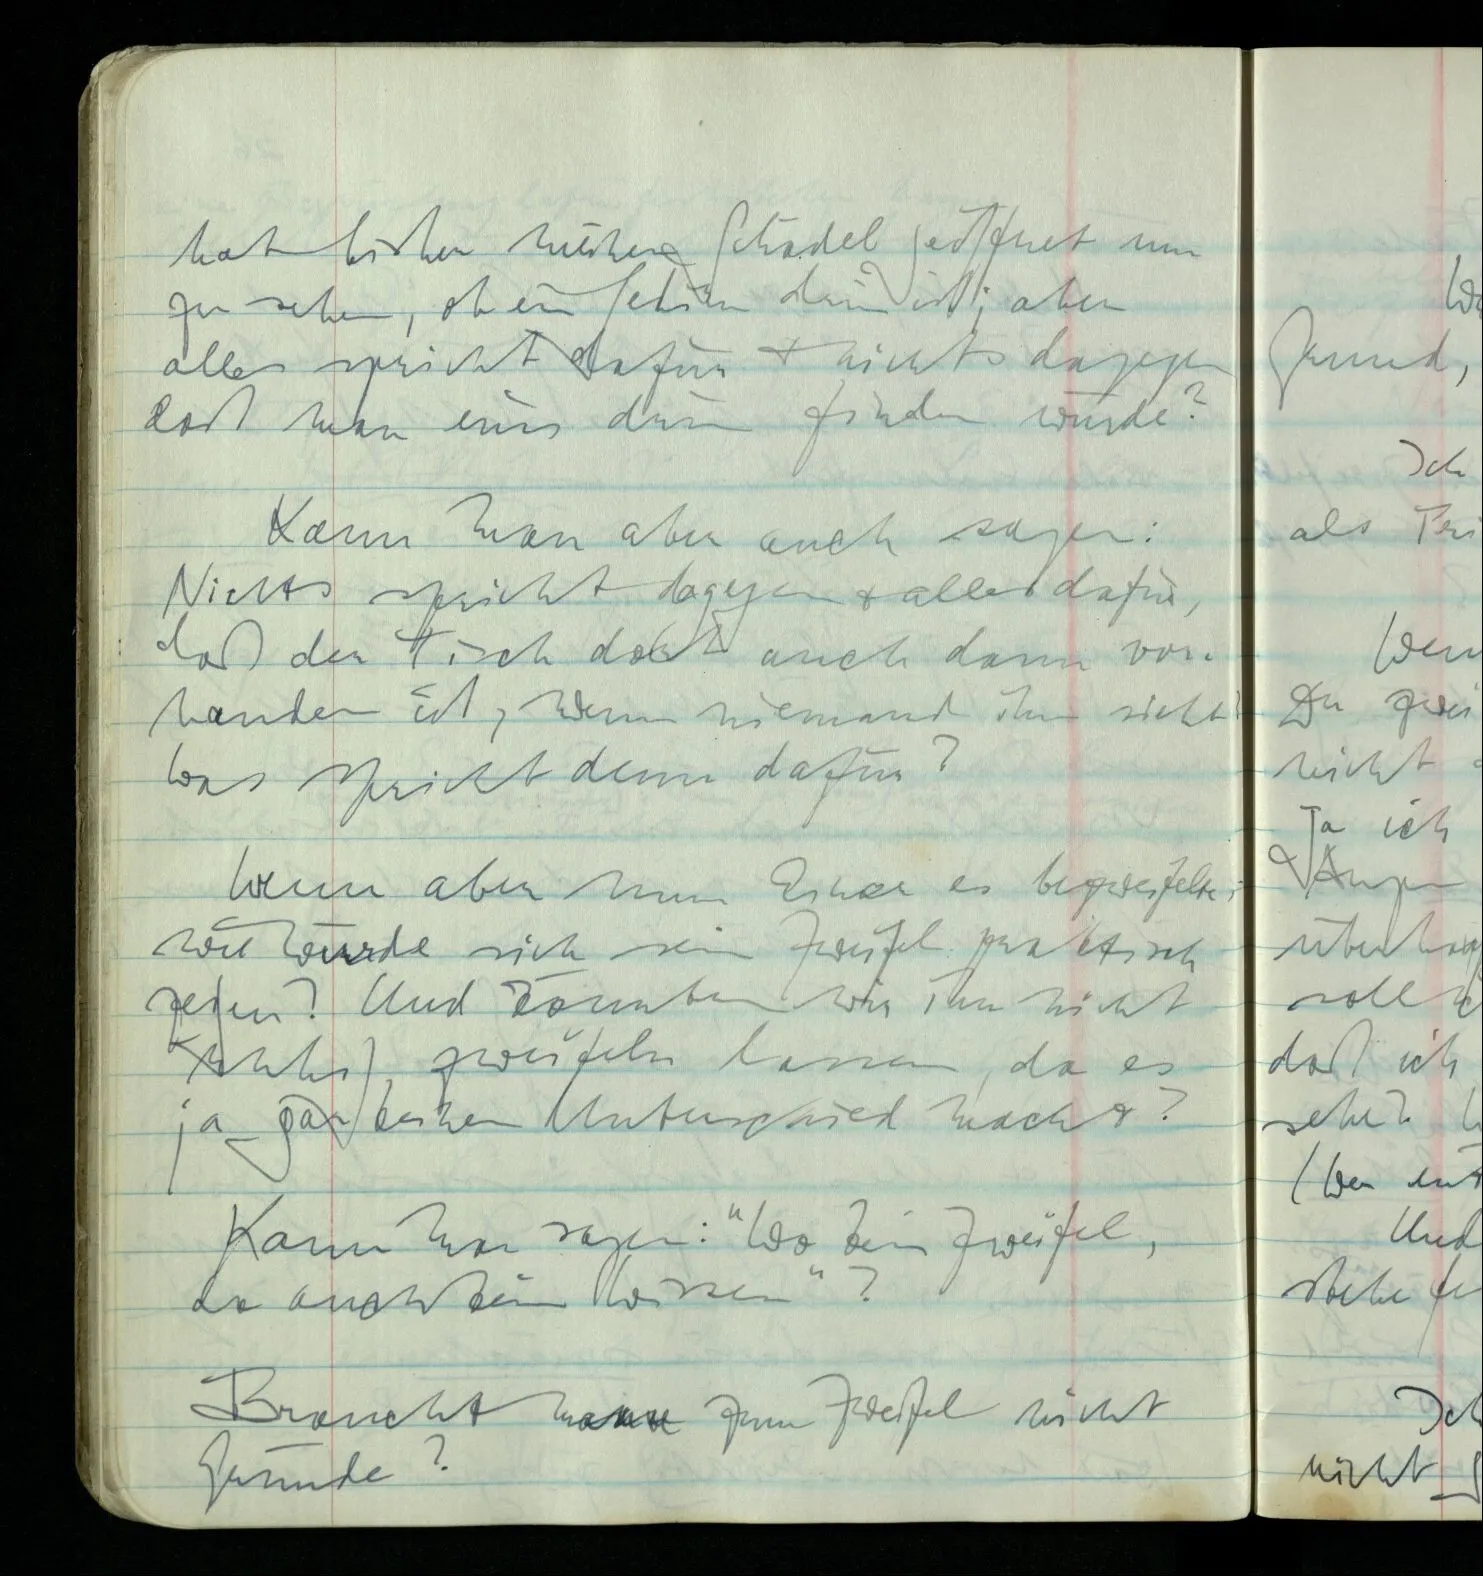 hat bisher meinen Schädel geöffnet um
zu sehen, ob ein Gehirn drin ist; aber
alles spricht dafür + nichts dagegen
daß man eins drin finden würde?
Kann man aber auch sagen:
Nichts spricht dagegen + alles dafür,
daß der Tisch dort auch dann vor-
handen ist, wenn niemand ihn sieht?
Was spricht denn dafür?
Wenn aber nun Einer es bezweifelte,
wie würde sich sein Zweifel praktisch
zeigen? Und könnten wir ihn nicht
ruhig zweifeln lassen, da es
ja gar keinen Unterschied macht?
Kann man sagen: "Wo kein Zweifel,
da auch kein Wissen"?
Braucht man zum Zweifel nicht
Gründe?
Grund,
Ich
als
Wenn
Du
nicht
Ja ich
Augen
überhaup
soll
daß ich
sehe?
(Wer
Und
stehe
Ich
nicht